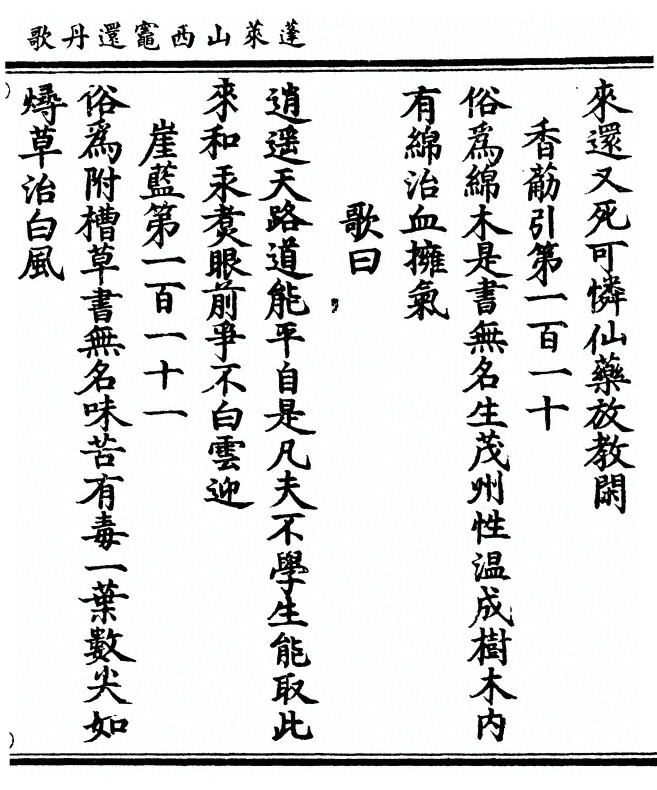 蓬萊山西竈還丹歌
來還又死可憐仙藥放教閑
香葋引第一百一十
俗爲綿木是書無名生茂州性温成樹木内
有綿治血擁氣
歌曰
逍遥天路道能平自是凡夫不學生能取此
來和汞煑眼前爭不白雲迎
崖藍第一百一十一
俗爲附槽草書無名味苦有毒一葉數尖如
燖草治白風